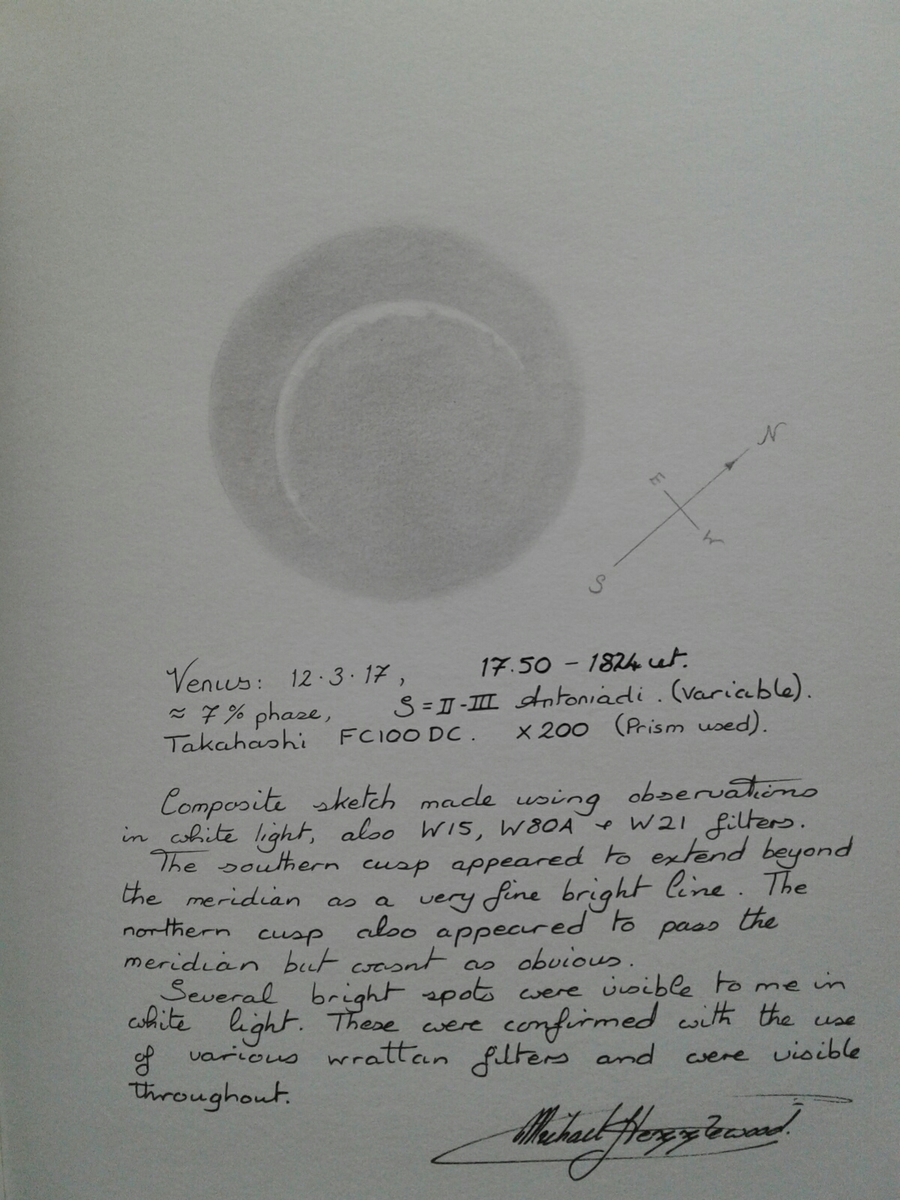 N
E
W
S
Venus: 12·3·17, 17.50 - 1824 ut.
≈ 7% phase, S = II-III Antoniadi. (variable).
Takahashi FC100 DC. x200 (Prism used).
Composite sketch made using observations
in white light, also W15, W80A + W21 filters.
The southern cusp appeared to extend beyond
the meridian as a very fine bright line. The
northern cusp also appeared to pass the
meridian but wasnt as obvious.
Several bright spots were visible to me in
white light. These were confirmed with the use
of various wrattan filters and were visible
throughout.
Michael